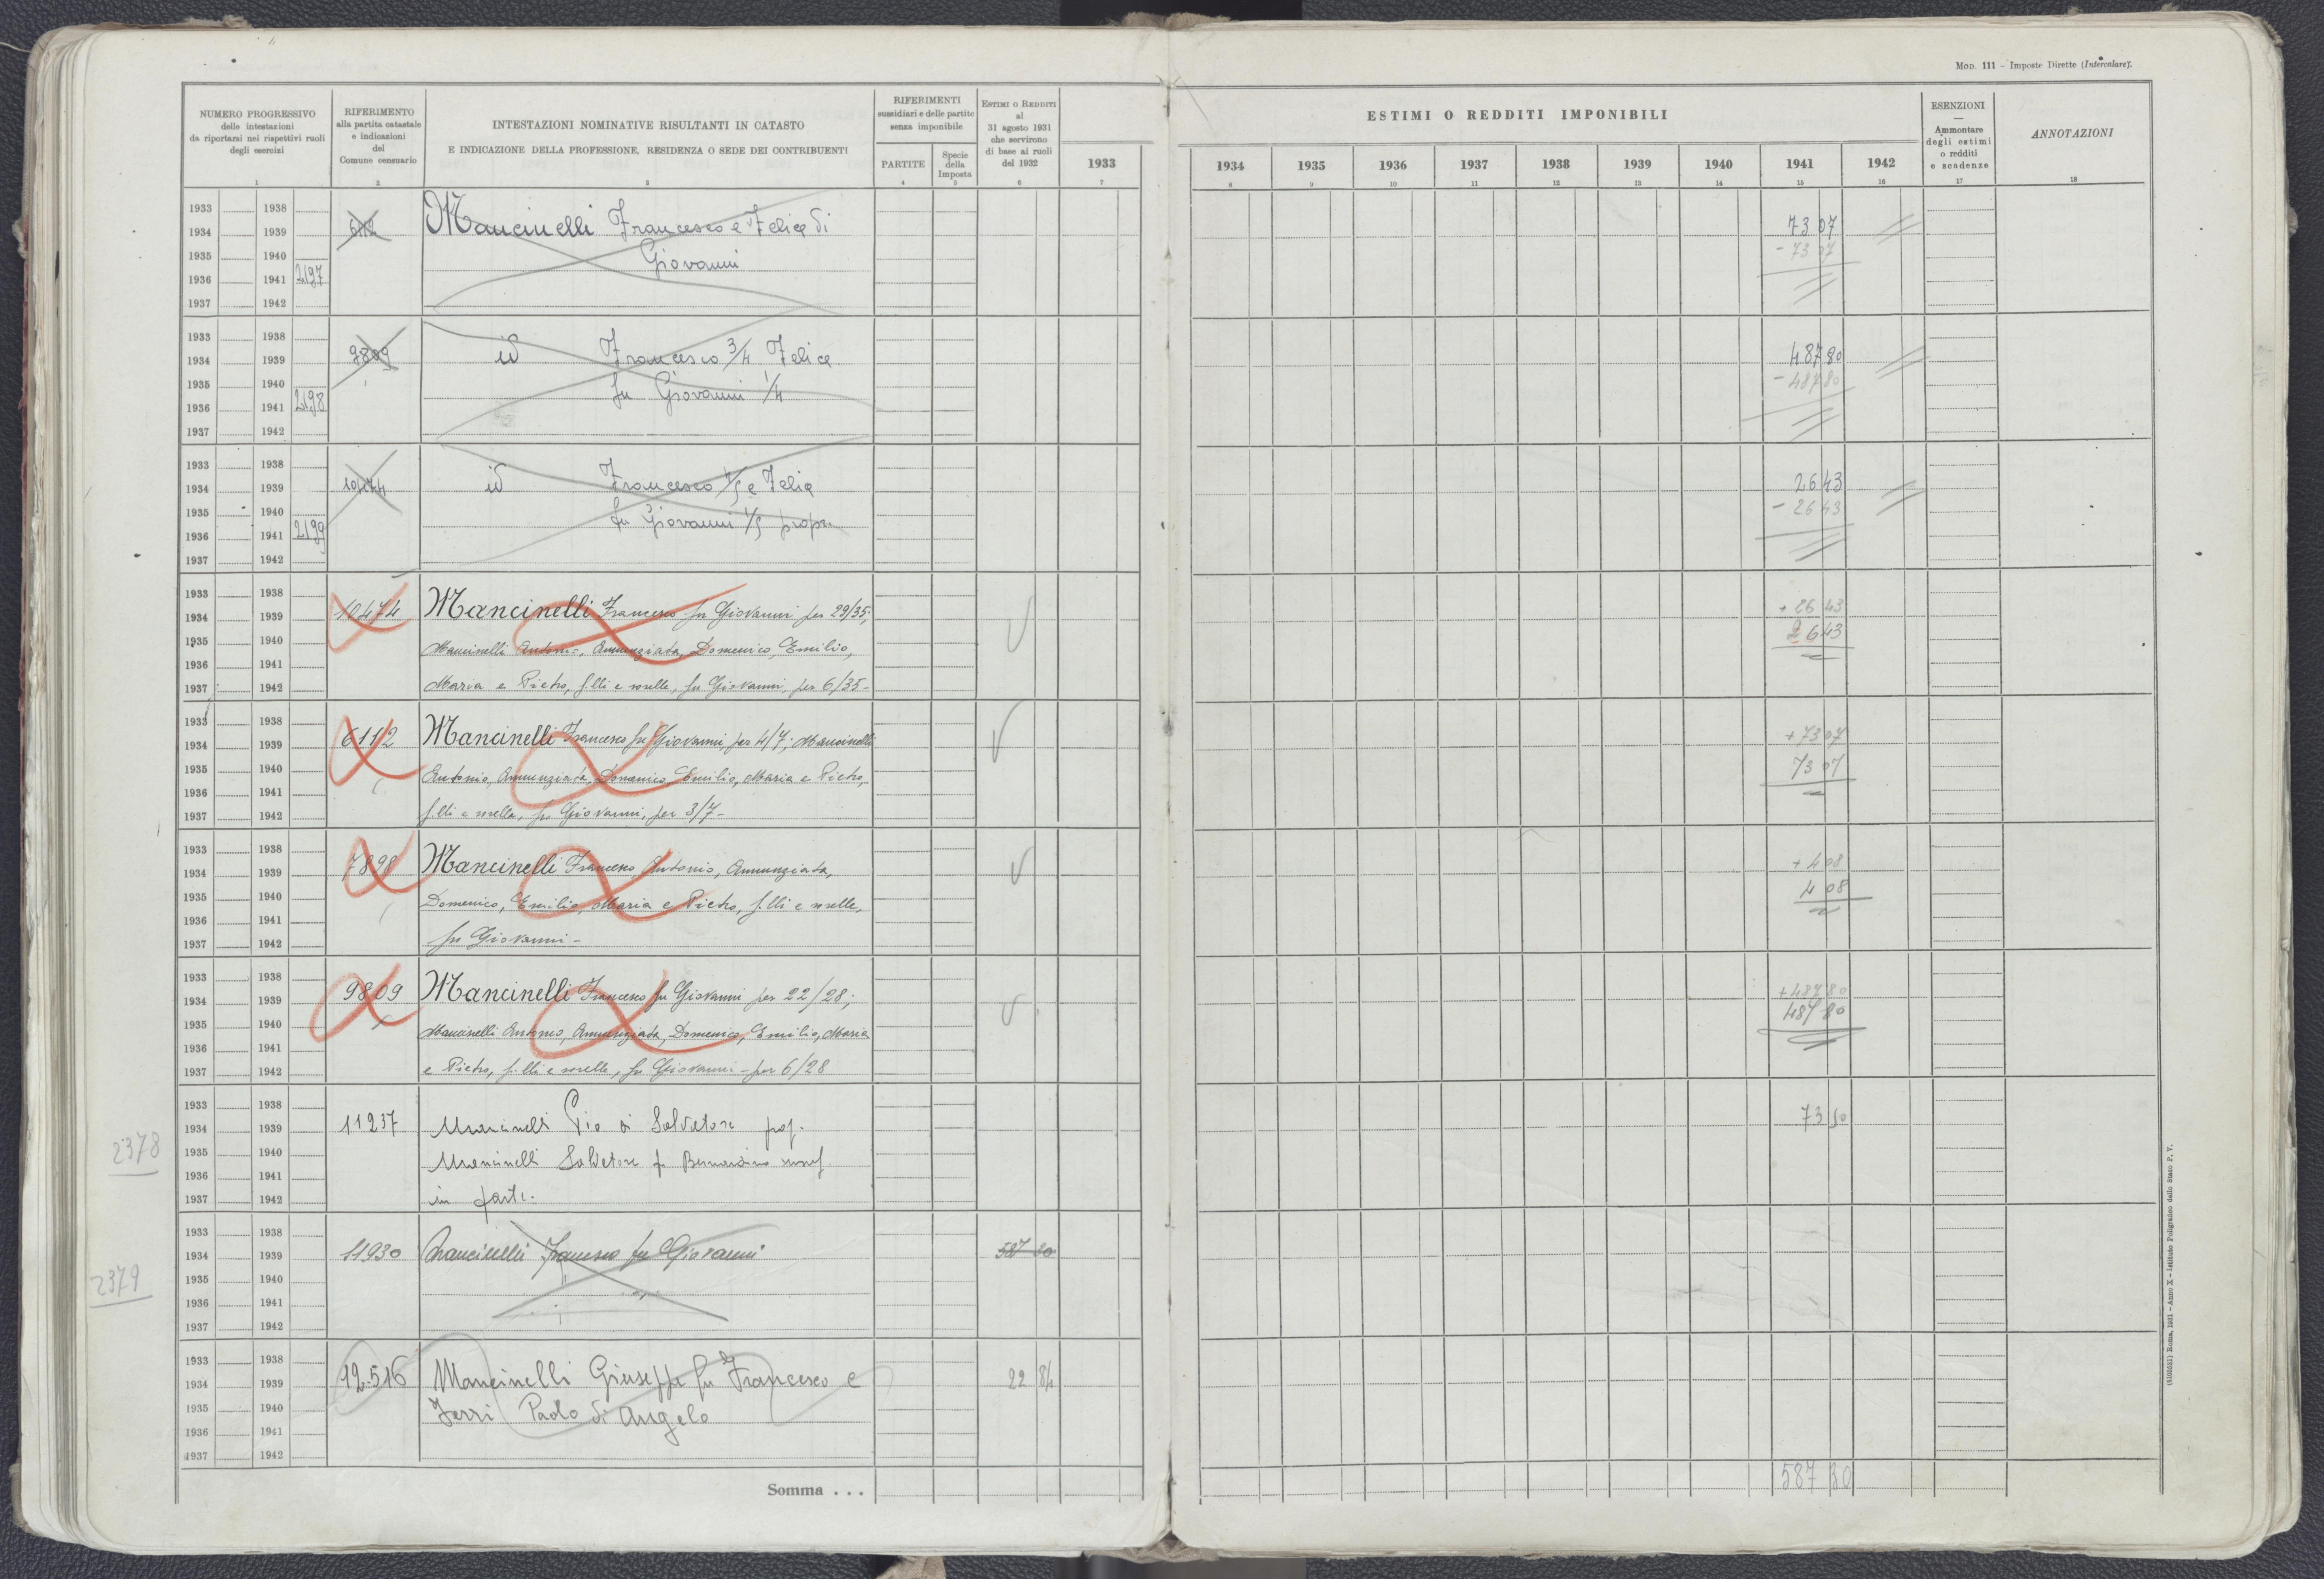 Mod. 111 - Imposte Dirette (Intercalare).
NUMERO PROGRESSIVO
delle intestazioni
da riportarsi nei rispettivi ruoli
degli esercizi
RIFERIMENTO
alla partita catastale
e indicazioni
del
Comune censuario
INTESTAZIONI NOMINATIVE RISULTANTI IN CATASTO
E INDICAZIONE DELLA PROFESSIONE, RESIDENZA O SEDE DEI CONTRIBUENTI
RIFERIMENTI
sussidiari e delle partite
senza imponibile
PARTITE
Specie
della
Imposta
Estimi o Redditi
al
31 agosto 1931
che servirono
di base ai ruoli
del 1932
ESTIMI O REDDITI IMPONIBILI
1933 1934 1935 1936 1937 1938 1939 1940 1941 1942
ESENZIONI
Ammontare
degli estimi
o redditi
e scadenze
ANNOTAZIONI
1 2 3 4 5 6 7 8 9 10 11 12 13 14 15 16 17 18
1933 1938
1934 1939 6112 Mancinelli Francesco e Felice di 73 07
1935 1940 Giovanni - 73 07
1936 1941 2197
1937 1942
1933 1938
1934 1939 9809 id Francesco 3/4 Felice 487 80
1935 1940 fu Giovanni 1/4 - 487 80
1936 1941 2198
1937 1942
1933 1938
1934 1939 10474 id Francesco 4/5 e Felice 26 43
1935 1940 fu Giovanni 1/5 propr. - 26 43
1936 1941 2199
1937 1942
1933 1938
1934 1939 10474 Mancinelli Francesco fu Giovanni per 29/35; + 26 43
1935 1940 Mancinelli Antonio, Annunziata, Domenico, Emilio, 26 43
1936 1941
1937 1942 Maria e Pietro, f.lli e sorelle, fu Giovanni, per 6/35 -
1933 1938
1934 1939 6112 Mancinelli Francesco fu Giovanni per 4/7; Mancinelli + 73 07
1935 1940 Antonio, Annunziata, Domenico, Emilio, Maria e Pietro, 73 07
1936 1941
1937 1942 f.lli e sorelle, fu Giovanni, per 3/7 -
1933 1938
1934 1939 7898 Mancinelli Francesco Antonio, Annunziata, + 4 08
1935 1940 Domenico, Emilio, Maria e Pietro, f.lli e sorelle, 4 08
1936 1941
1937 1942 fu Giovanni -
1933 1938
1934 1939 9809 Mancinelli Francesco fu Giovanni per 22/28; + 487 80
1935 1940 Mancinelli Antonio, Annunziata, Domenico, Emilio, Maria 487 80
1936 1941
1937 1942 e Pietro, f.lli e sorelle, fu Giovanni - per 6/28
1933 1938
1934 1939 11237 Mancinelli Pio di Salvatore prop. 73 50
2378
1935 1940 Mancinelli Salvatore fu Bernardino usuf.
1936 1941
1937 1942 in parte.
1933 1938
1934 1939 11930 Mancinelli Francesco fu Giovanni 587 80
2379
1935 1940
1936 1941
1937 1942
1933 1938
1934 1939 12.516 Mancinelli Giuseppe fu Francesco e 22 84
1935 1940 Paolo di Angelo
1936 1941
1937 1942
Somma . . . 587 80
Roma, 1931 - Anno X - Istituto Poligrafico dello Stato P. V.